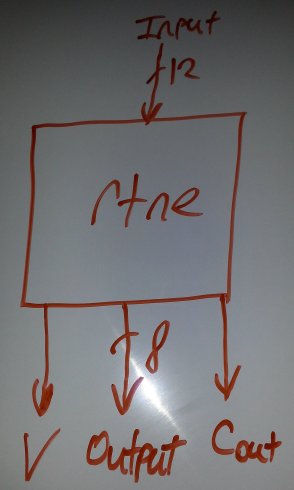 Input
12
rtne
8
V Output Cout